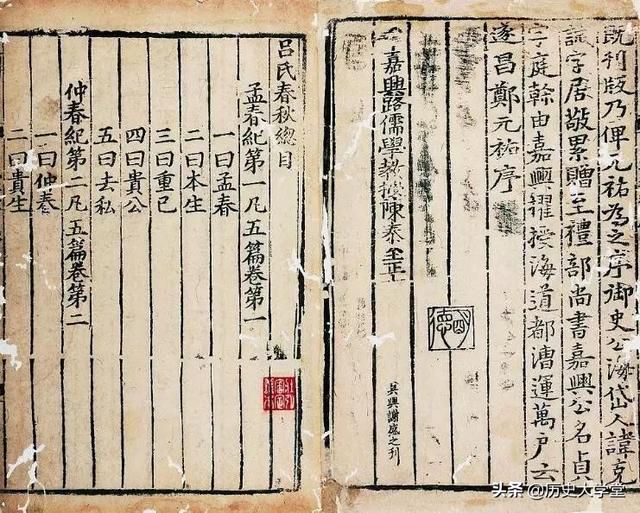 既刊版乃俾元祐為之序御史公海岱人諱克
字居敬累贈至禮部尚書嘉興公名貞
字庭榦由嘉興擢授海道都漕運萬户云
遂昌鄭元祐序
嘉興路儒學教授陳泰至正
德
吴興謝盛之刊
吕氏春秋總目
孟春紀第一凡五篇卷第一
一曰孟春
二曰本生
三曰重己
四曰貴公
五曰去私
仲春紀第二凡五篇卷第二
一曰仲春
二曰貴生
头条 @历史大学堂